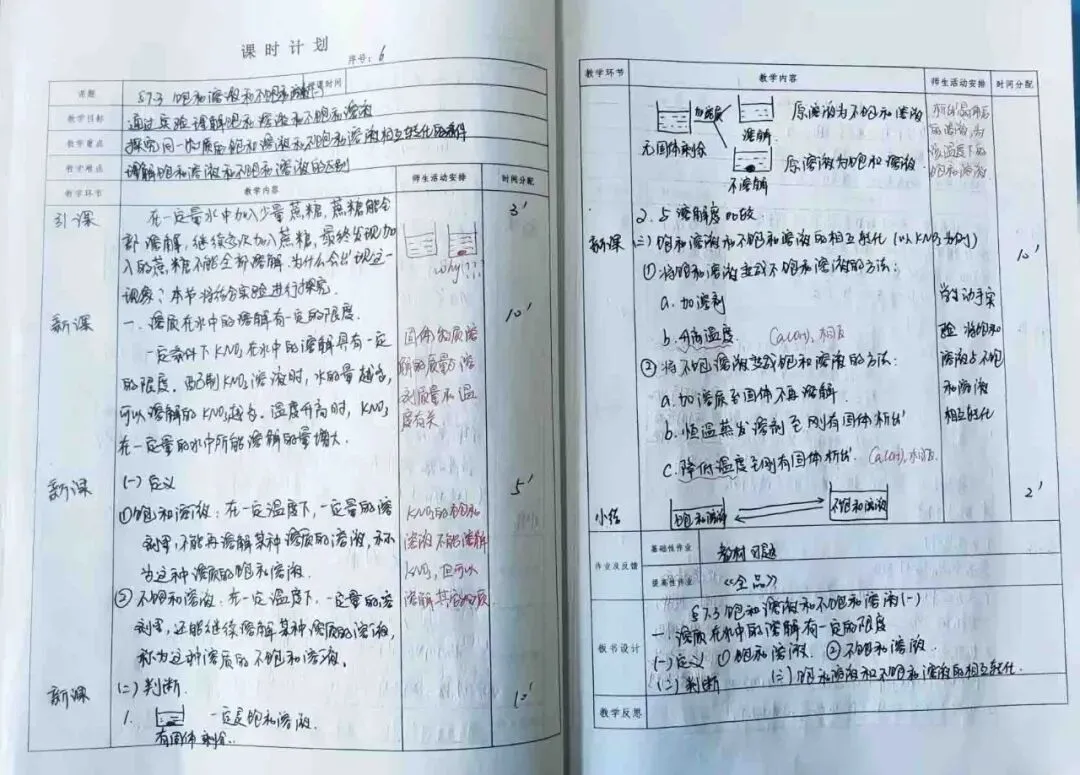 课时计划
序号：6
课题
§7.3 饱和溶液和不饱和溶液
授课时间
教学目标
通过实验理解饱和溶液和不饱和溶液
教学重点
探究同一物质的饱和溶液和不饱和溶液相互转化的条件
教学难点
理解饱和溶液和不饱和溶液的区别
教学环节
教学内容
师生活动安排
时间分配
引课
在一定量水中加入少量蔗糖，蔗糖能全
部溶解，继续多次加入蔗糖，最终发现加
入的蔗糖不能全部溶解．为什么会出现这一
现象？本节将结合实验进行探究．
why???
3'
新课
一．溶质在水中的溶解有一定的限度．
一定条件下KNO₃在水中的溶解具有一定
的限度．配制KNO₃溶液时，水的量越多，
可以溶解的KNO₃越多．温度升高时，KNO₃
在一定量的水中所能溶解的量增大．
固体物质溶
解的质量与溶
剂质量和温
度有关
10'
新课
(一)定义
①饱和溶液：在一定温度下，一定量的溶
剂里，不能再溶解某种溶质的溶液，称
为这种溶质的饱和溶液．
②不饱和溶液：在一定温度下，一定量的溶
剂里，还能继续溶解某种溶质的溶液，
称为这种溶质的不饱和溶液．
KNO₃的饱和
溶液不能溶解
KNO₃，但可以
溶解其它物质
5'
新课
(二)判断
1.
一定是饱和溶液．
有固体剩余．
10'
教学环节
教学内容
师生活动安排
时间分配
加溶质
无固体剩余
溶解
原溶液为不饱和溶液
不溶解
原溶液为饱和溶液
的溶液为
该温度下的
饱和溶液．
2.与溶解度比较
新课
(三)饱和溶液和不饱和溶液的相互转化(以KNO₃为例)
①将饱和溶液变成不饱和溶液的方法：
a.加溶剂
b.升高温度
Ca(OH)₂相反
②将不饱和溶液变成饱和溶液的方法：
a.加溶质至固体不再溶解
b.恒温蒸发溶剂至刚有固体析出
c.降低温度至刚有固体析出．
Ca(OH)₂相反．
学生动手实
验 将饱和
溶液与不饱
和溶液
相互转化
10'
小结
饱和溶液
不饱和溶液
2'
作业及反馈
基础性作业
教材习题
提高性作业
《全品》
板书设计
§7.3饱和溶液和不饱和溶液(一)
一．溶质在水中的溶解有一定的限度
(一)定义 ①饱和溶液．②不饱和溶液．
(二)判断 (三)饱和溶液和不饱和溶液的相互转化．
教学反思